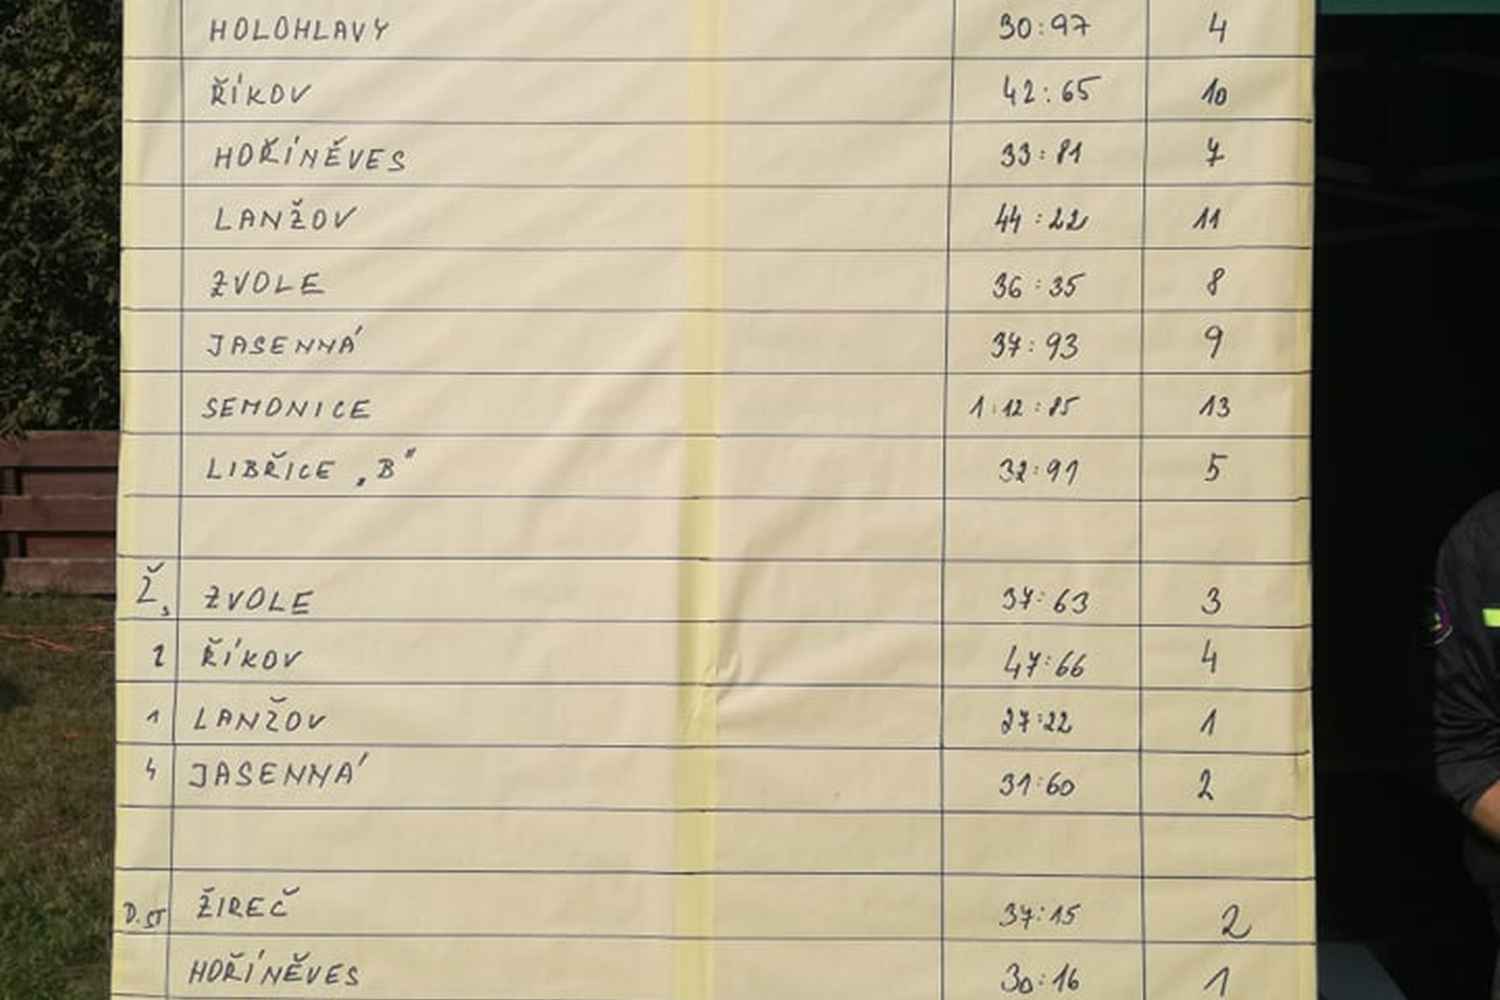 HOLOHLAVY 30:97 4
ŘÍKOV 42:65 10
HOŘÍNĚVES 33:81 7
LANŽOV 44:22 11
ZVOLE 36:35 8
JASENNÁ 37:93 9
SEMONICE 1:12:85 13
LIBŘICE „B" 32:91 5
Ž, ZVOLE 37:63 3
2 ŘÍKOV 47:66 4
1 LANŽOV 27:22 1
4 JASENNÁ 31:60 2
D.ST ŽIREČ 37:15 2
HOŘÍNĚVES 30:16 1